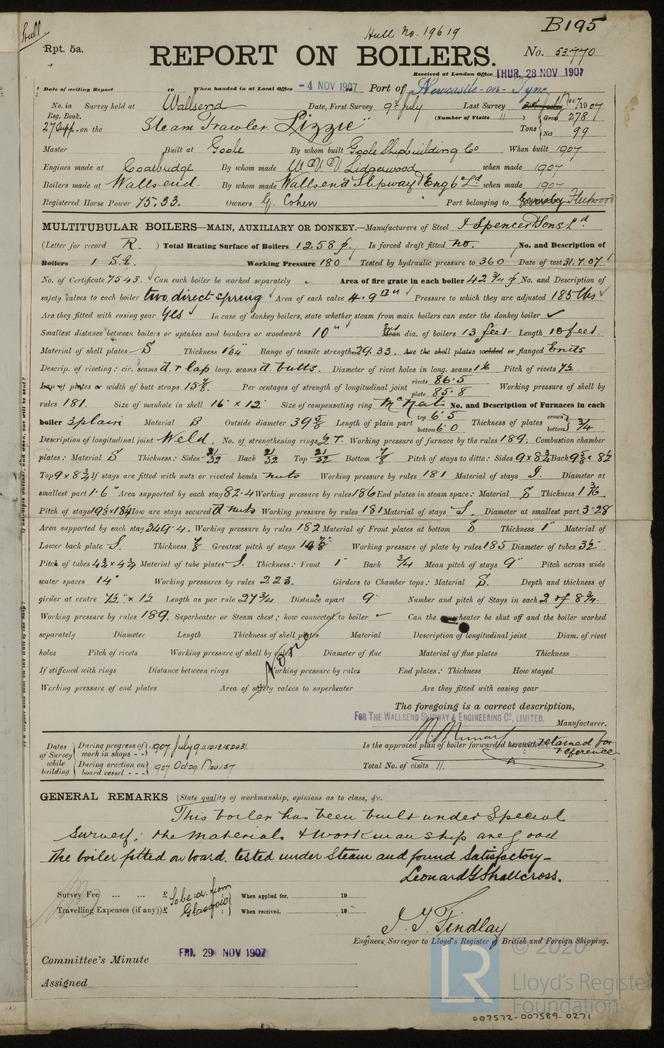 Hull No. 19619
B195
Hull
Rpt. 5a.
REPORT ON BOILERS.
No. 53770
Received at London Office THUR. 28 NOV 1907
Date of writing Report 19 When handed in at Local Office -4 NOV 1907 Port of Newcastle-on-Tyne
No. in Survey held at Wallsend Date, First Survey 9th July Last Survey 1907
Reg. Book.
(Number of Visits 11) Gross 278
27 Supp. on the Steam Trawler "Lizzie" Tons Net 99
Master Built at Goole By whom built Goole Shipbuilding Co When built 1907
Engines made at Coatbridge By whom made W. V. V. Lidgerwood when made 1907
Boilers made at Wallsend. By whom made Wallsend Slipway & Eng Co Ld when made 1907
Registered Horse Power 75.33. Owners G. Cohen Port belonging to Fleetwood
MULTITUBULAR BOILERS—MAIN, AUXILIARY OR DONKEY.—Manufacturers of Steel J Spencer & Sons Ld
(Letter for record R.) Total Heating Surface of Boilers 1258 Is forced draft fitted no. No. and Description of
Boilers 1 S.E. Working Pressure 180 Tested by hydraulic pressure to 360 Date of test 31.7.07
No. of Certificate 7543. Can each boiler be worked separately Area of fire grate in each boiler 42 3/4 No. and Description of
safety valves to each boiler two direct spring Area of each valve 4.9 Pressure to which they are adjusted 185 lbs
Are they fitted with easing gear yes In case of donkey boilers, state whether steam from main boilers can enter the donkey boiler ✓
Smallest distance between boilers or uptakes and bunkers or woodwork 10" dia. of boilers 13 feet Length 10 feet
Material of shell plates S Thickness Range of tensile strength 29.33. Are the shell plates welded or flanged Ends
Descrip. of riveting: cir. seams d. r lap long. seams d. butts. Diameter of rivet holes in long. seams Pitch of rivets 7 1/2
Lap of plates or width of butt straps 15 7/8 Per centages of strength of longitudinal joint rivets 86.5 Working pressure of shell by
plate 85.8
rules 181. Size of manhole in shell 16" × 12" Size of compensating ring McNeil No. and Description of Furnaces in each
boiler 3 plain Material S Outside diameter 39 5/8 Length of plain part top 6'5 bottom 6'0 Thickness of plates crown bottom 3/4
Description of longitudinal joint Weld. No. of strengthening rings Working pressure of furnace by the rules 189. Combustion chamber
plates: Material S Thickness: Sides 21/32 Back 21/32 Top 21/32 Bottom 7/8 Pitch of stays to ditto: Sides 9 × 8 3/4 Back
Top 9 × 8 3/4 If stays are fitted with nuts or riveted heads nuts Working pressure by rules 181 Material of stays Diameter at
smallest part 1.6 Area supported by each stay 82.4 Working pressure by rules 186 End plates in steam space: Material S Thickness
Pitch of stays How are stays secured d nuts Working pressure by rules 181 Material of stays S. Diameter at smallest part 3.28
Area supported by each stay 349.4. Working pressure by rules 182 Material of Front plates at bottom S Thickness 1" Material of
Lower back plate S. Thickness 7/8 Greatest pitch of stays Working pressure of plate by rules 185 Diameter of tubes 3 1/2
Pitch of tubes Material of tube plates S. Thickness: Front 1" Back 3/4 Mean pitch of stays 9" Pitch across wide
water spaces 14" Working pressures by rules 223. Girders to Chamber tops: Material S. Depth and thickness of
girder at centre Length as per rule 27 3/4 Distance apart 9" Number and pitch of Stays in each 2 of 8 3/4
Working pressure by rules 189. Superheater or Steam chest; how connected to boiler ✓ Can the superheater be shut off and the boiler worked
separately Diameter Length Thickness of shell plates Material Description of longitudinal joint Diam. of rivet
holes Pitch of rivets Working pressure of shell by rules Diameter of flue Material of flue plates Thickness
None
If stiffened with rings Distance between rings Working pressure by rules End plates: Thickness How stayed
Working pressure of end plates Area of safety valves to superheater Are they fitted with easing gear
The foregoing is a correct description,
FOR THE WALLSEND SLIPWAY & ENGINEERING CO. LIMITED.
Manufacturer.
Dates of Survey while building
During progress of work in shops -- 1907 July 9
During erection on board vessel --- 1907
Is the approved plan of boiler forwarded herewith retained for reference
Total No. of visits 11.
GENERAL REMARKS (State quality of workmanship, opinions as to class, &c.
This boiler has been built under Special
Survey: the materials & workmanship are good
The boiler fitted on board, tested under Steam and found Satisfactory—
Leonard G Shallcross.
Survey Fee ... ... £ To be a. from When applied for, 19
Travelling Expenses (if any) £ Glasgow When received, 19
J. T. Findlay
Engineer Surveyor to Lloyd's Register of British and Foreign Shipping.
Committee's Minute FRI. 29 NOV 1907
Assigned
© 2020
LR
Lloyd's Register
Foundation
007572-007589-0271